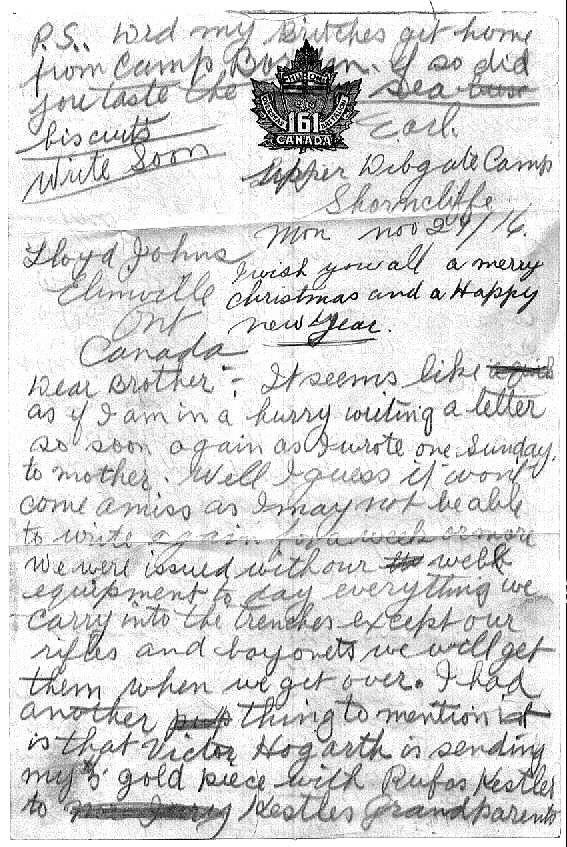 P.S.. Did my Britches get home
from Camp Borden. if so did
you taste the sea
biscuits
Earl.
Write Soon
161
CANADA
Upper Dibgate Camp
Shorncliffe
Mon nov 27/16.
Lloyd Johns
Elimville
Ont
Canada
I wish you all a merry
christmas and a Happy
new Year.
Dear Brother:- It seems like
as if I am in a hurry writing a letter
so soon again as I wrote one Sunday.
to mother. Well I guess it wont
come amiss as I may not be able
to write again for a week or more
We were issued with our webb
equipment to day everything we
carry into the trenches except our
rifles and bayonets we will get
them when we get over. I had
another thing to mention
is that Victor Hogarth is sending
my $5 gold piece with Rufus Kestler
to Kestles Grandparents